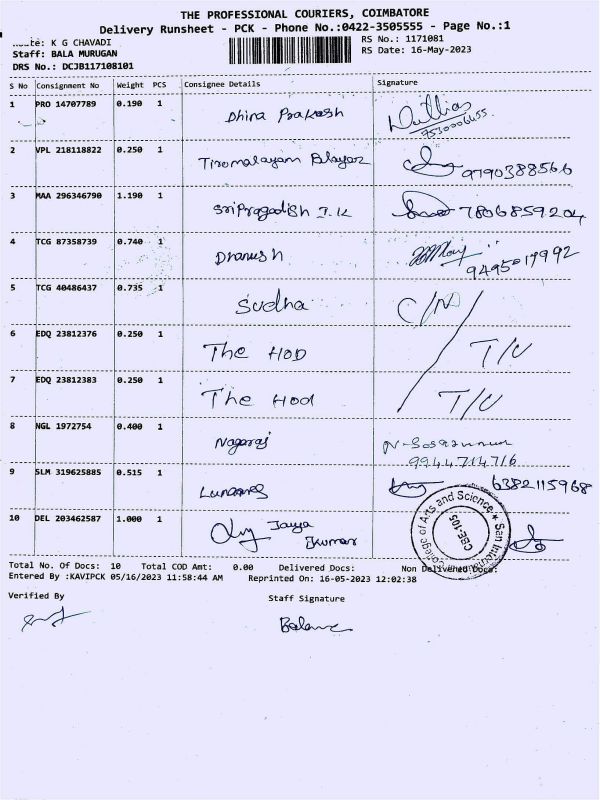 THE PROFESSIONAL COURIERS, COIMBATORE
Delivery Runsheet - PCK - Phone No.:0422-3505555 - Page No.:1
K G CHAVADI
RS No.: 1171081
Staff: BALA MURUGAN
RS Date: 16-May-2023
DRS No.: DCJB117108101
S No Consignment No Weight PCS Consignee Details Signature
1 PRO 14707789 0.190 1 Dhina Prakash
7530006455
2 VPL 218118822 0.250 1 Tiromalayam Palayar 9790388566
3 MAA 296346790 1.190 1 Sripragadish I.K 7806859204
4 TCG 87358739 0.740 1 Dhanush
9495019992
5 TCG 40486437 0.735 1 Sudha C/N
6 EDQ 23812376 0.250 1 The HOD T/U
7 EDQ 23812383 0.250 1 The Hod T/U
8 NGL 1972754 0.400 1 Nagaraj
9944714716
9 SLM 319625885 0.515 1 6382115968
10 DEL 203462587 1.000 1 Jaya Kumar
College of Arts and Science ★ San International
CBE-105
Total No. Of Docs: 10 Total COD Amt: 0.00 Delivered Docs: Non Delivered Docs:
Entered By :KAVIPCK 05/16/2023 11:58:44 AM Reprinted On: 16-05-2023 12:02:38
Verified By
Staff Signature